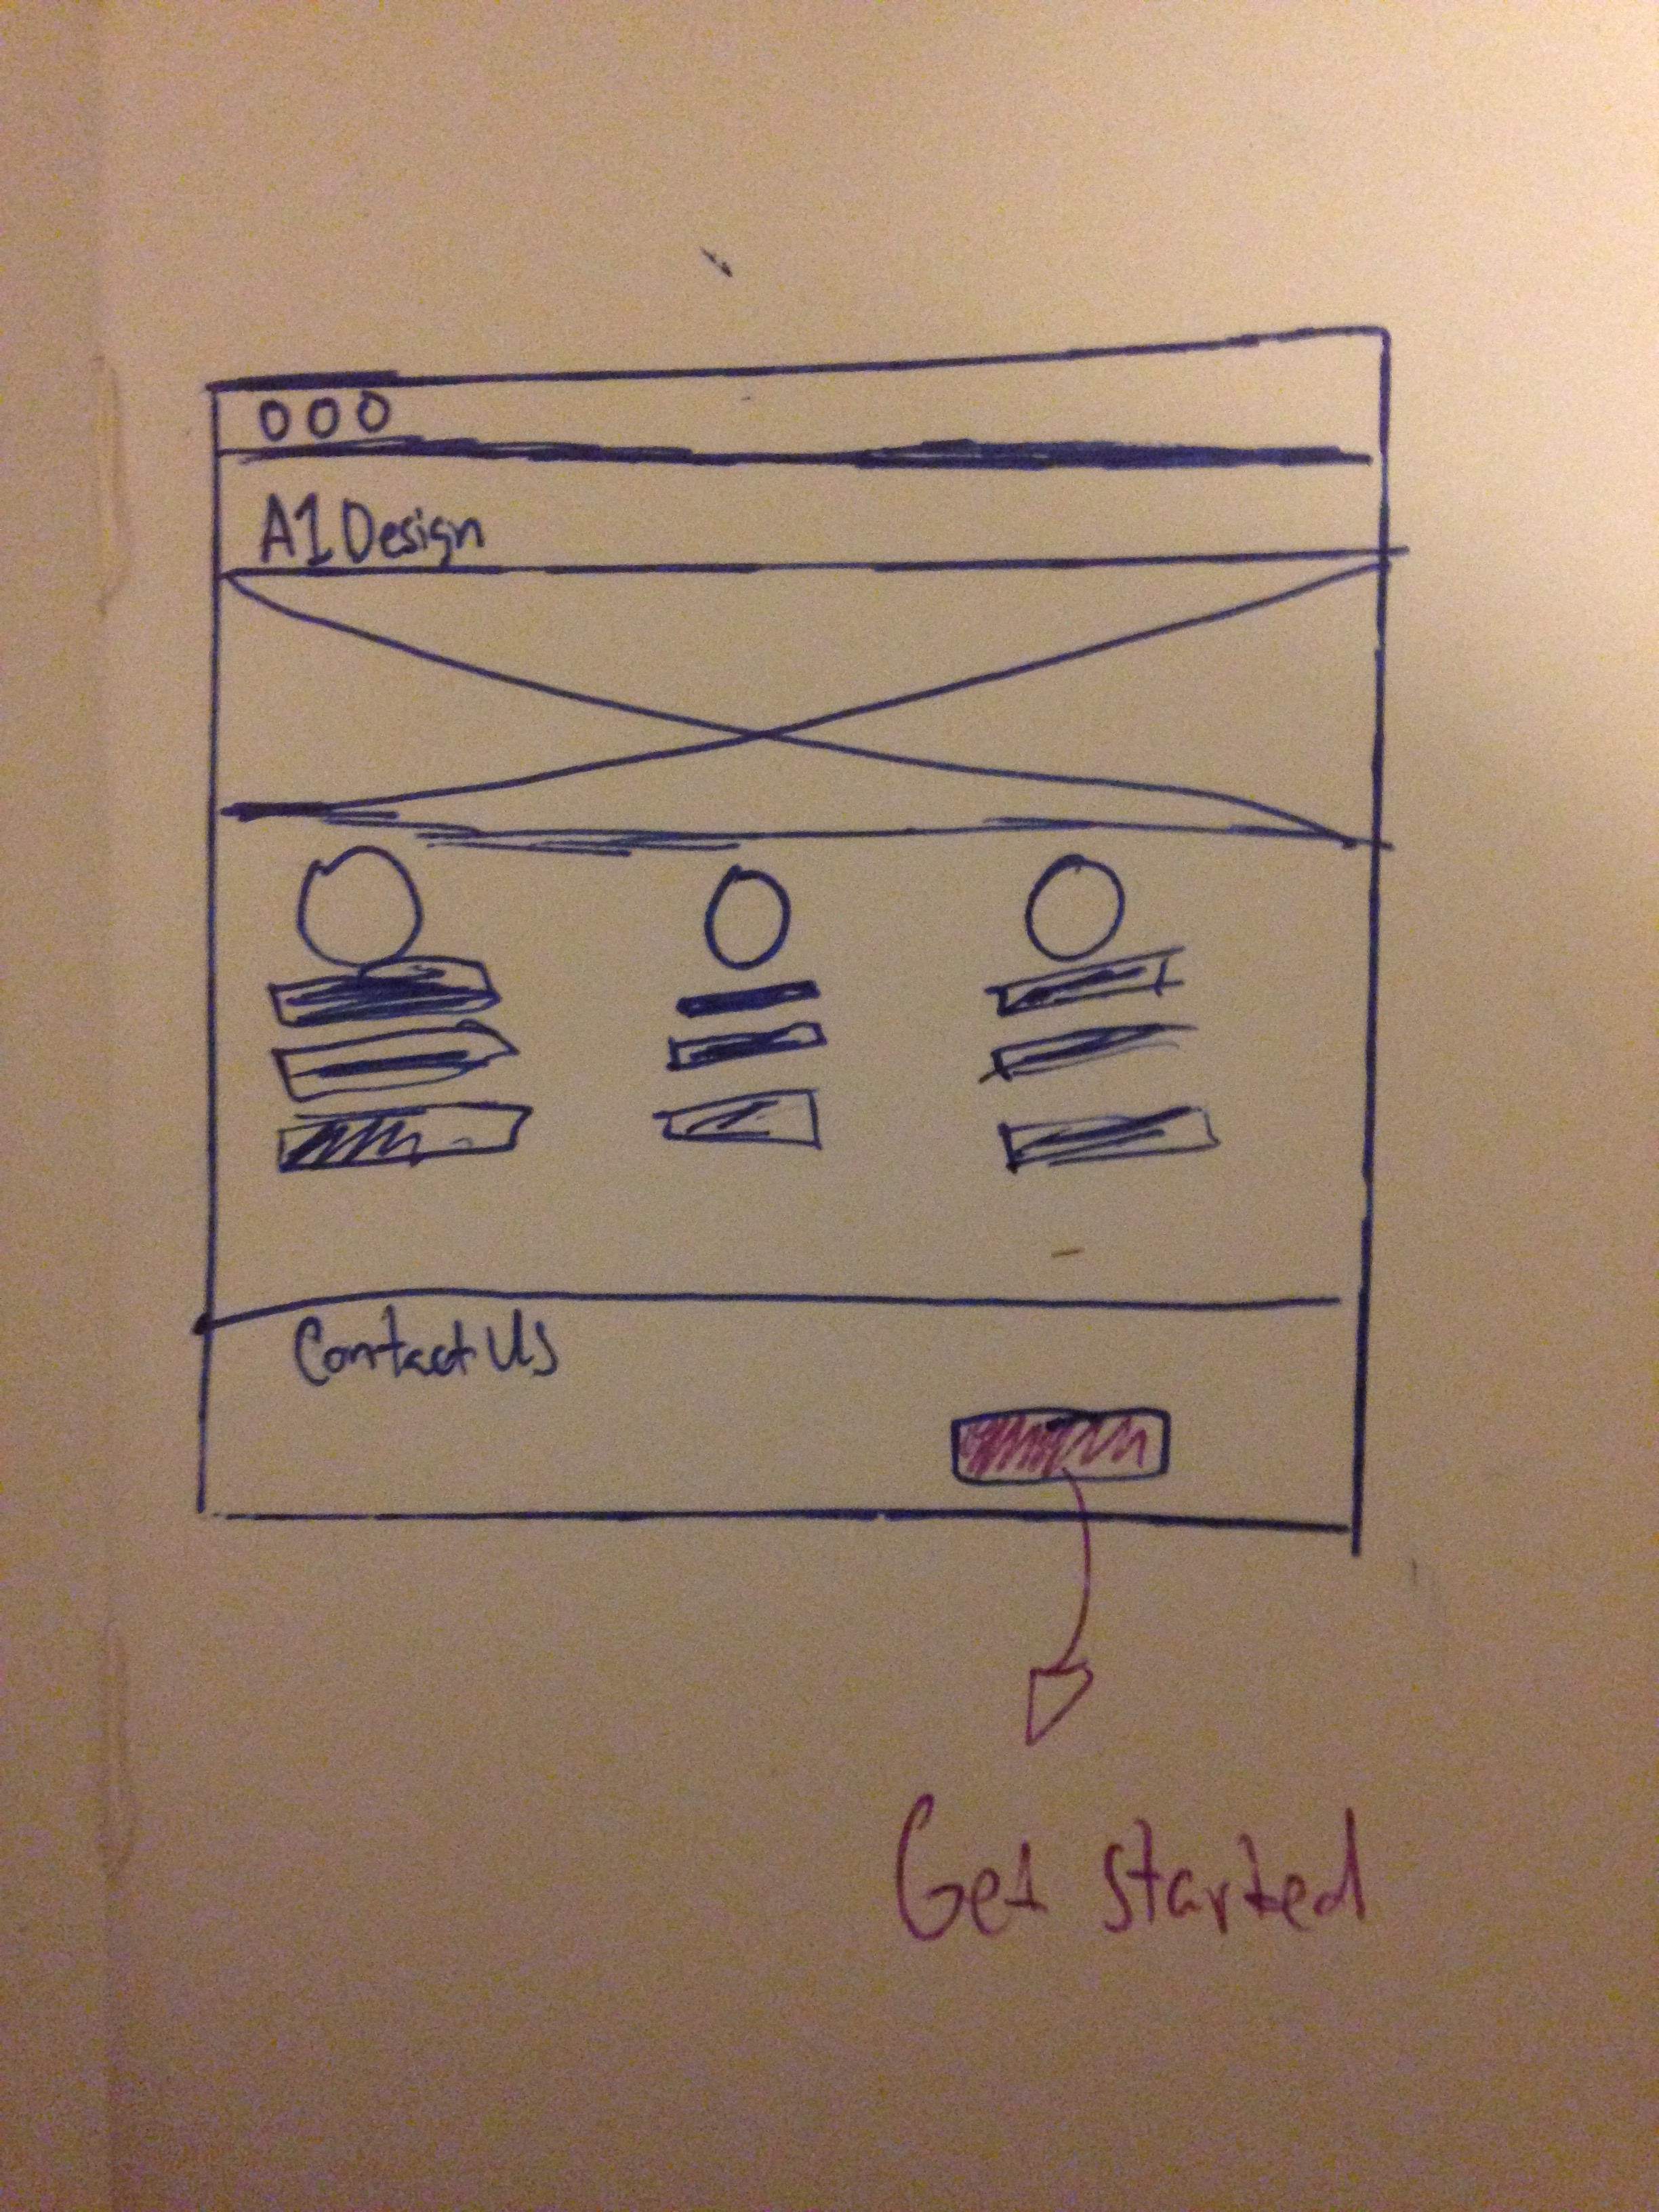 A1 Design
Contact Us
Get started